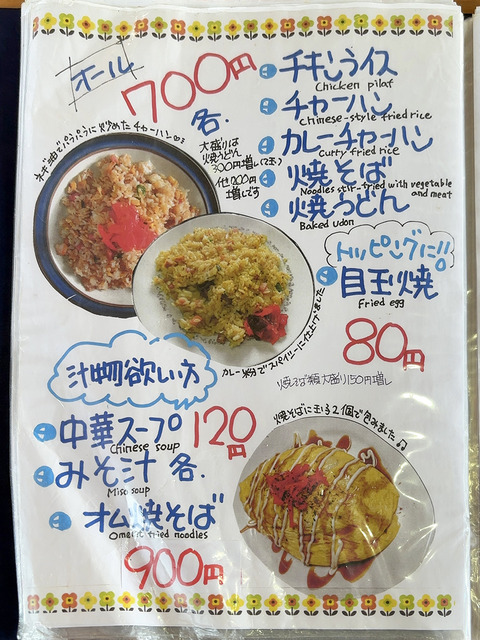 オール
700円
各.
チキンライス
Chicken pilaf
チャーハン
Chinese-style fried rice
カレーチャーハン
Curry fried rice
焼そば
Noodles stir-fried with vegetable and meat
焼うどん
Baked udon
ネギ油でパラパラに炒めたチャーハン
大盛りは
焼うどん
300円増し(2玉)
他200円
増しです
トッピングに!!
目玉焼
Fried egg
80円
カレー粉でスパイシーに仕上げました
焼そば類大盛り150円増し
汁物欲しい方
中華スープ
Chinese soup
120円
みそ汁 各.
Miso soup
オム焼そば
Omelet fried noodles
900円
焼そばに玉子2個で包みました♫